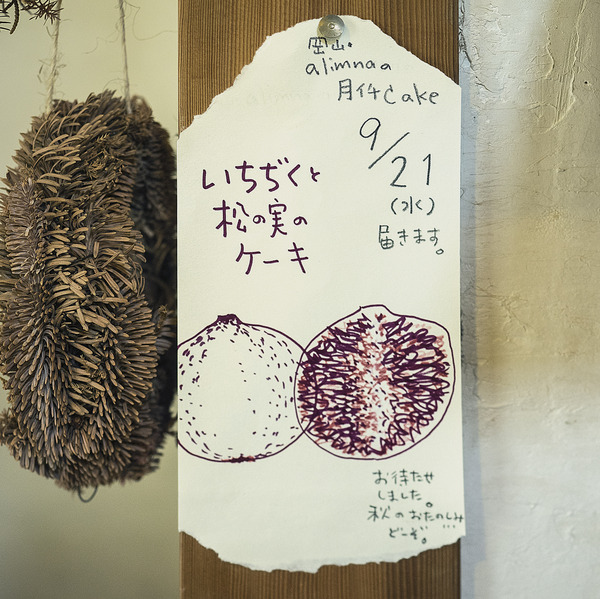 岡山・
alimnaa
月イチcake
9/21
(水)
届きます。
いちぢくと
松の実の
ケーキ
お待たせ
しました。
秋のおたのしみ…
どーぞ。